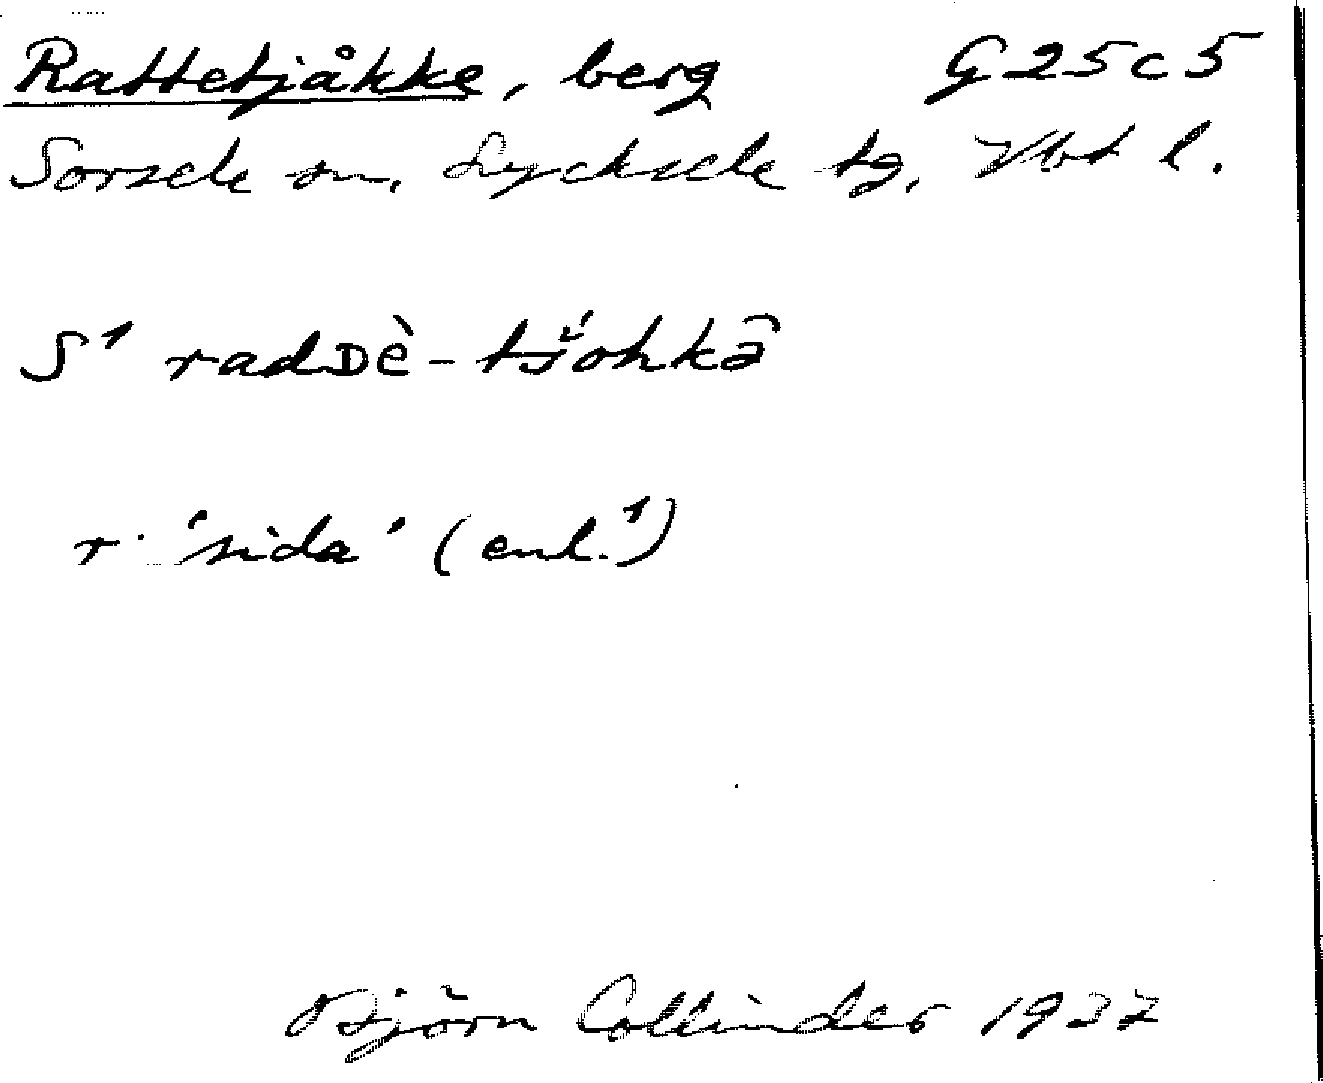 Rattetjåkke, berg G25c5
Sorsele sn, Lycksele tg, Vbt l.
S¹ radᴅè-tšohkā̂
r· 'sida' (enl.¹)
Björn Collinder 1937